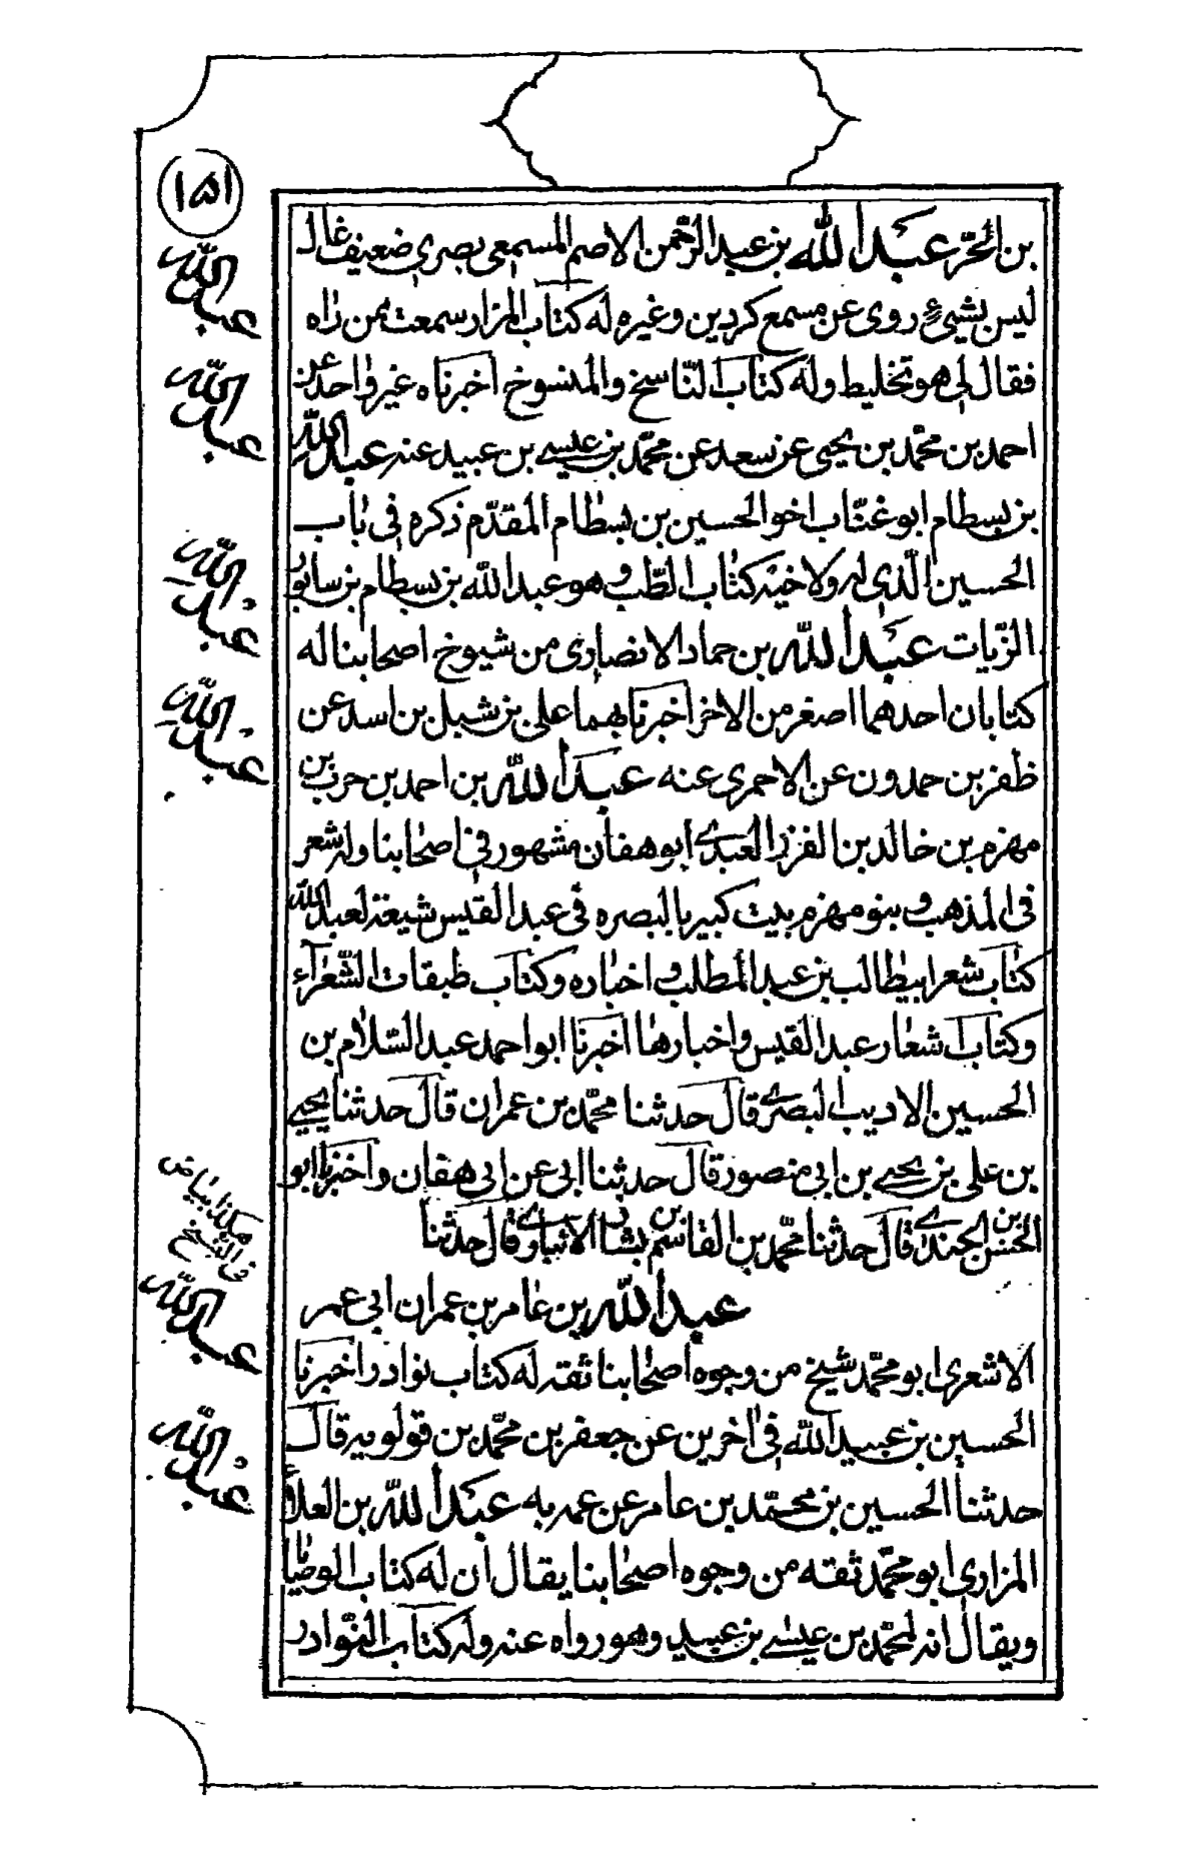 ١٥١
بن الحرّ عبد الله بن عبد الرّحمن الاصم المسمعى بصرى ضعيف غال
ليس بشيئ روى عن مسمع كردين وغيره له كتاب المزار سمعت ممن راه
فقال لى هو تخليط وله كتاب النّاسخ والمنسوخ اخبرناه غير واحد عن
احمد بن محمّد بن يحيى عن سعد عن محمّد بن عيسى بن عبيد عنه عبد الله
بن بسطام ابو عتّاب اخو الحسين بن بسطام المقدّم ذكره فى باب
الحسين الّذى له ولاخيه كتاب الطّب وهو عبد الله بن بسطام بن سابور
الزّيات عبد الله بن حماد الانصارى من شيوخ اصحابنا له
كتابان احدهما اصغر من الاخر اخبرنا بهما على بن شبل بن اسد عن
ظفر بن حمدون عن الاحمرى عنه عبد الله بن احمد بن حرب بن
مهزم بن خالد بن الفزر العبدى ابو هفان مشهور فى اصحابنا وله شعر
فى المذهب وبنو مهزم بيت كبير بالبصره فى عبد القيس شيعة لعبد الله
كتاب شعر ابيطالب بن عبد المطلب واخباره وكتاب طبقات الشّعراء
وكتاب اشعار عبد القيس واخبارها اخبرنا ابو احمد عبد السّلام بن
الحسين الاديب البصرى قال حدثنا محمّد بن عمران قال حدثنا يحيى
بن على بن يحيى بن ابى منصور قال حدثنا ابى عن ابى هفان واخبرنا ابو
الحسن بن الجندى قال حدثنا محمّد بن القاسم بن بشار الانبارى قال حدثنا
عبد الله بن عامر بن عمران ابى عمر
الاشعرى ابو محمّد شيخ من وجوه اصحابنا ثقه له كتاب نوادر اخبرنا
الحسين بن عبيد الله فى اخرين عن جعفر بن محمّد بن قولويه قال
حدثنا الحسين بن محمّد بن عامر عن عمه به عبد الله بن العلاء
المزارى ابو محمّد ثقه من وجوه اصحابنا يقال ان له كتاب الوصايا
ويقال انه لمحمّد بن عيسى بن عبيد وهو رواه عنه وله كتاب النّوادر
عبد الله
عبد الله
عبد الله
عبد الله
هكذا بياض
فى النسخ
عبد الله
عبد الله